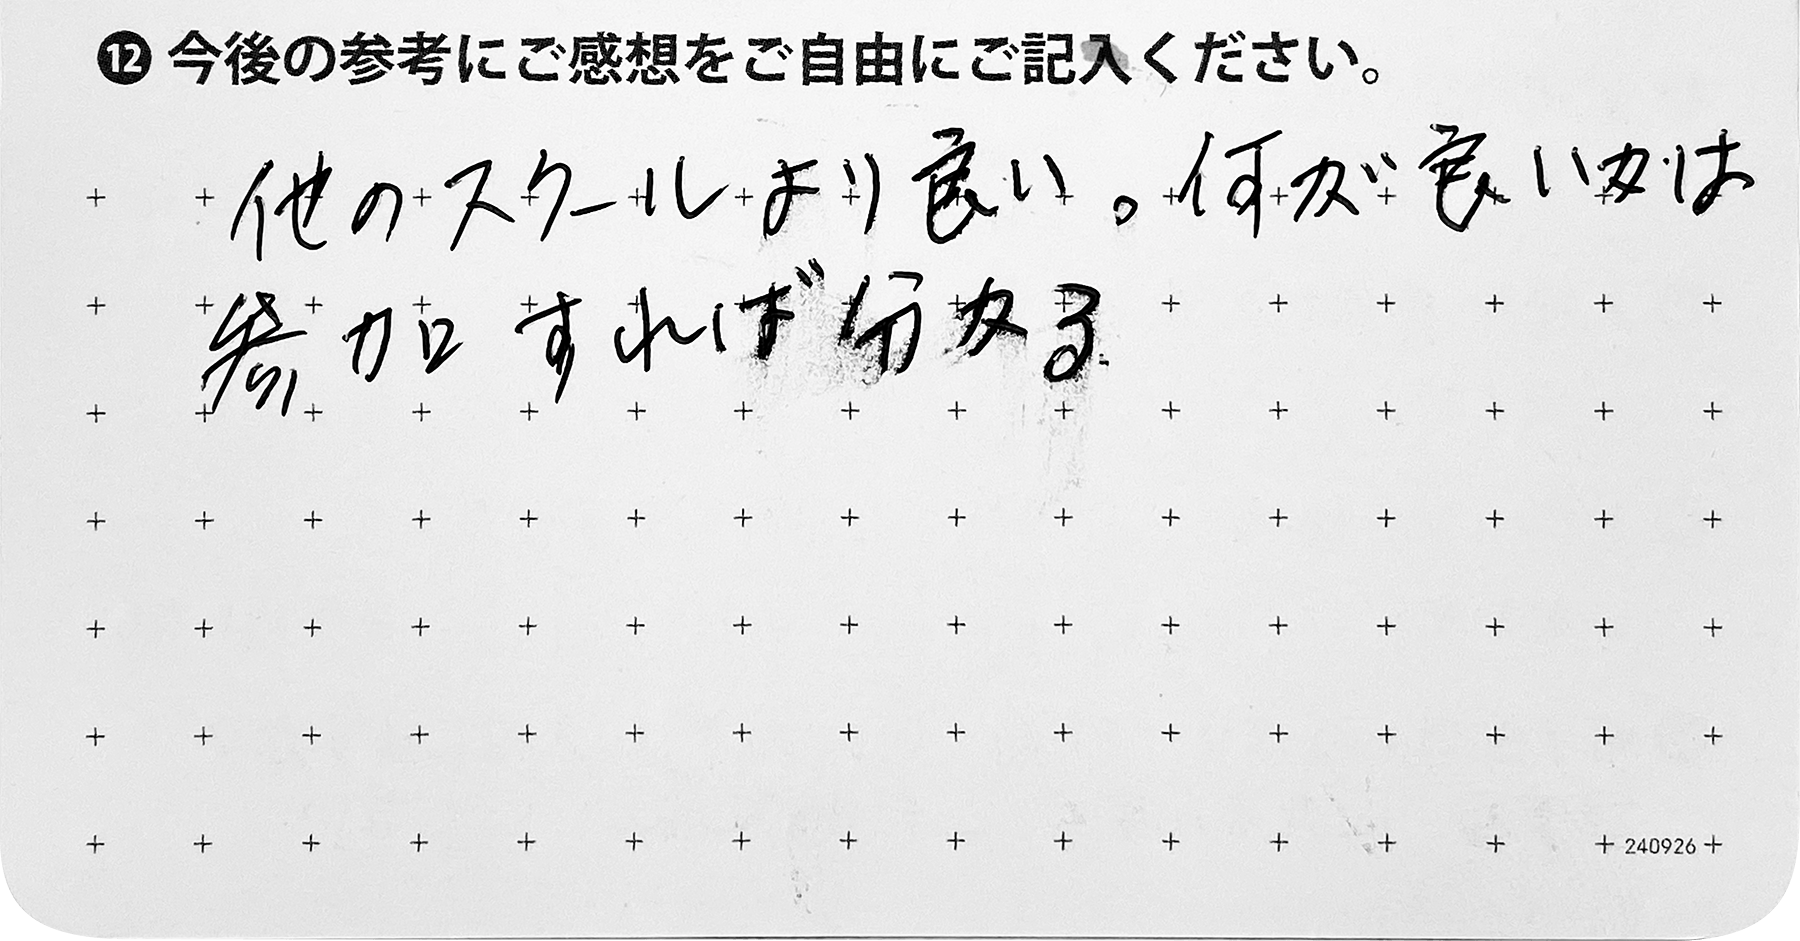 ⓬今後の参考にご感想をご自由にご記入ください。
他のスクールより良い。何が良いかは
参加すれば分かる
240926